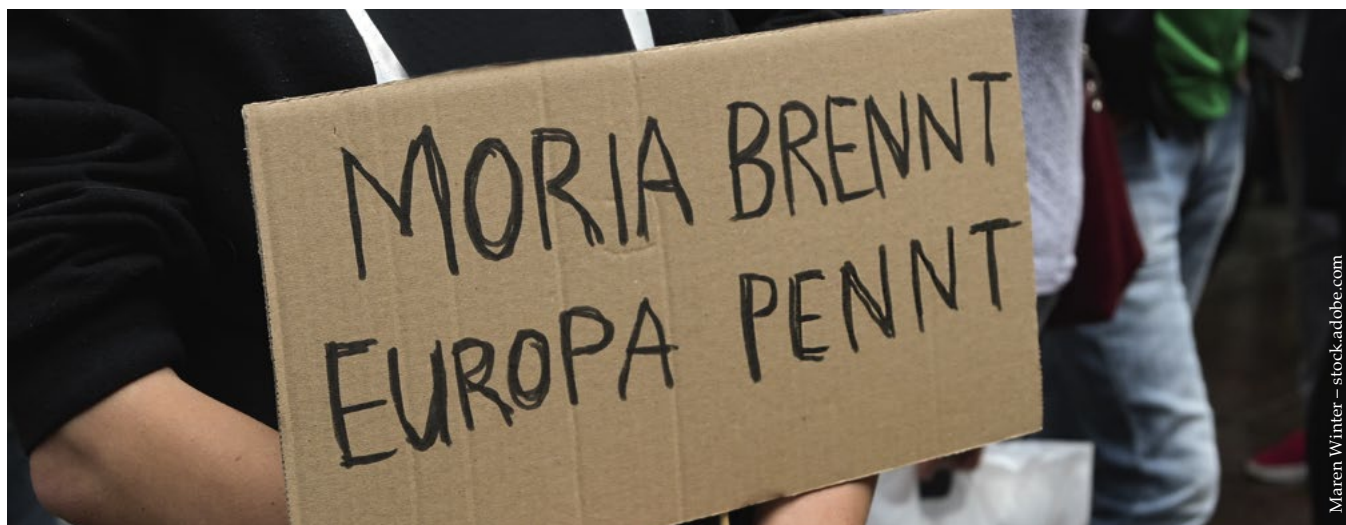 MORIA BRENNT
EUROPA PENNT
Maren Winter – stock.adobe.com